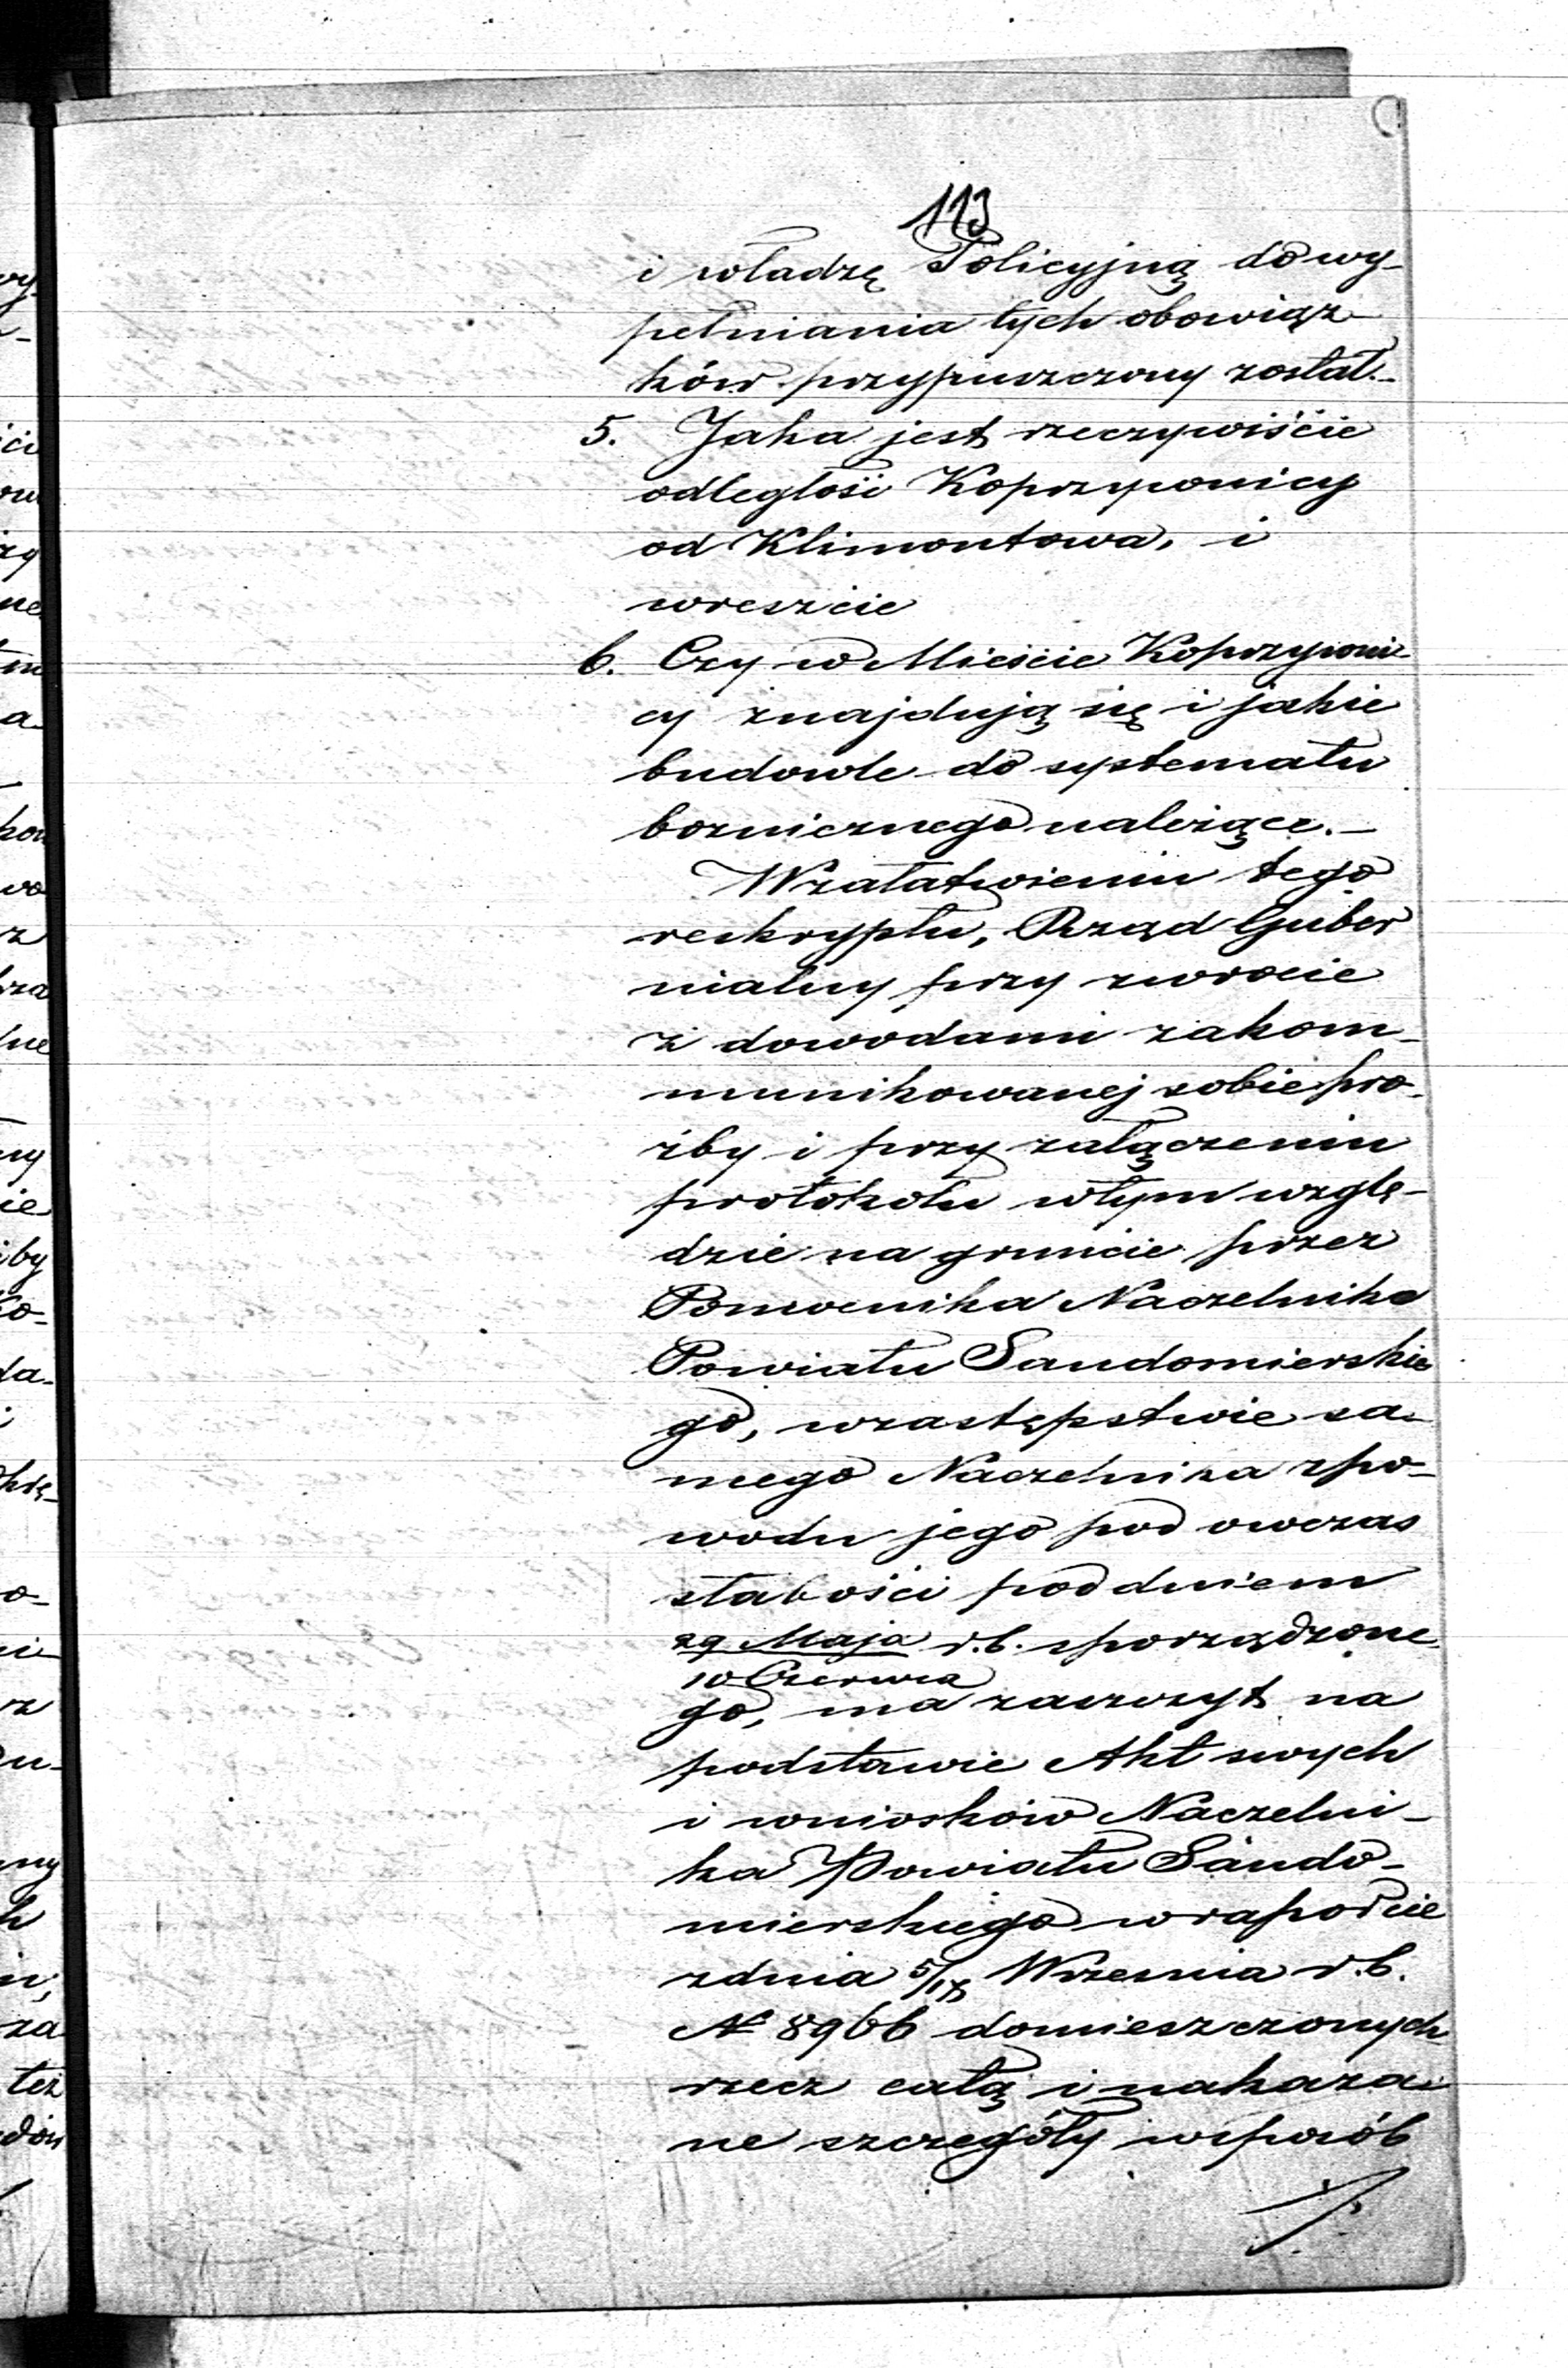 113
i władzę Policyjną do wy-
pełniania tych obowiąz-
ków przypuszczony został.-
5. Jaka jest rzeczywiście
odległość Koprzywnicy
od Klimontowa, i
wreszcie
6. Czy w Mieście Koprzywni-
cy znajdują się i jakie
budowle do systematu
boznicznego należące.-
W załatwieniu tego
reskryptu, Rząd Guber
nialny przy zwrocie
z dowodami zakom-
munikowanej sobie pro-
źby i przy załączeniu
protokołu w tym wzglę-
dzie na gruncie przez
Pomocnika Naczelnika
Powiatu Sandomierskie
go, w zastępstwie sa-
mego Naczelnika z po-
wodu jego pod owczas
słabości pod dniem
29 Maja r.b. sporządzone
10 Czerwca
go, ma zaszczyt na
podstawie Akt swych
i wniosków Naczelni-
ka Powiatu Sando-
mierskiego w raporcie
z dnia 5/17 Września r.b.
№ 8966 domieszczonych
rzecz całą i nakaza-
ne szczegóły w sposób